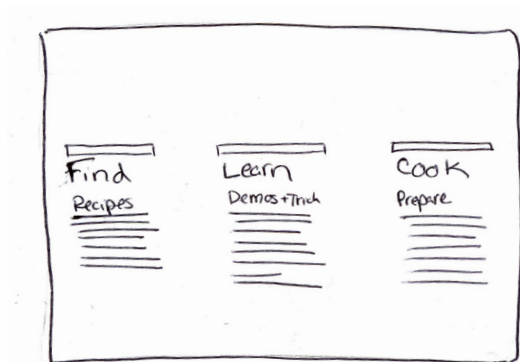 Find
Recipes
Learn
Demos+Trick
Cook
Prepare